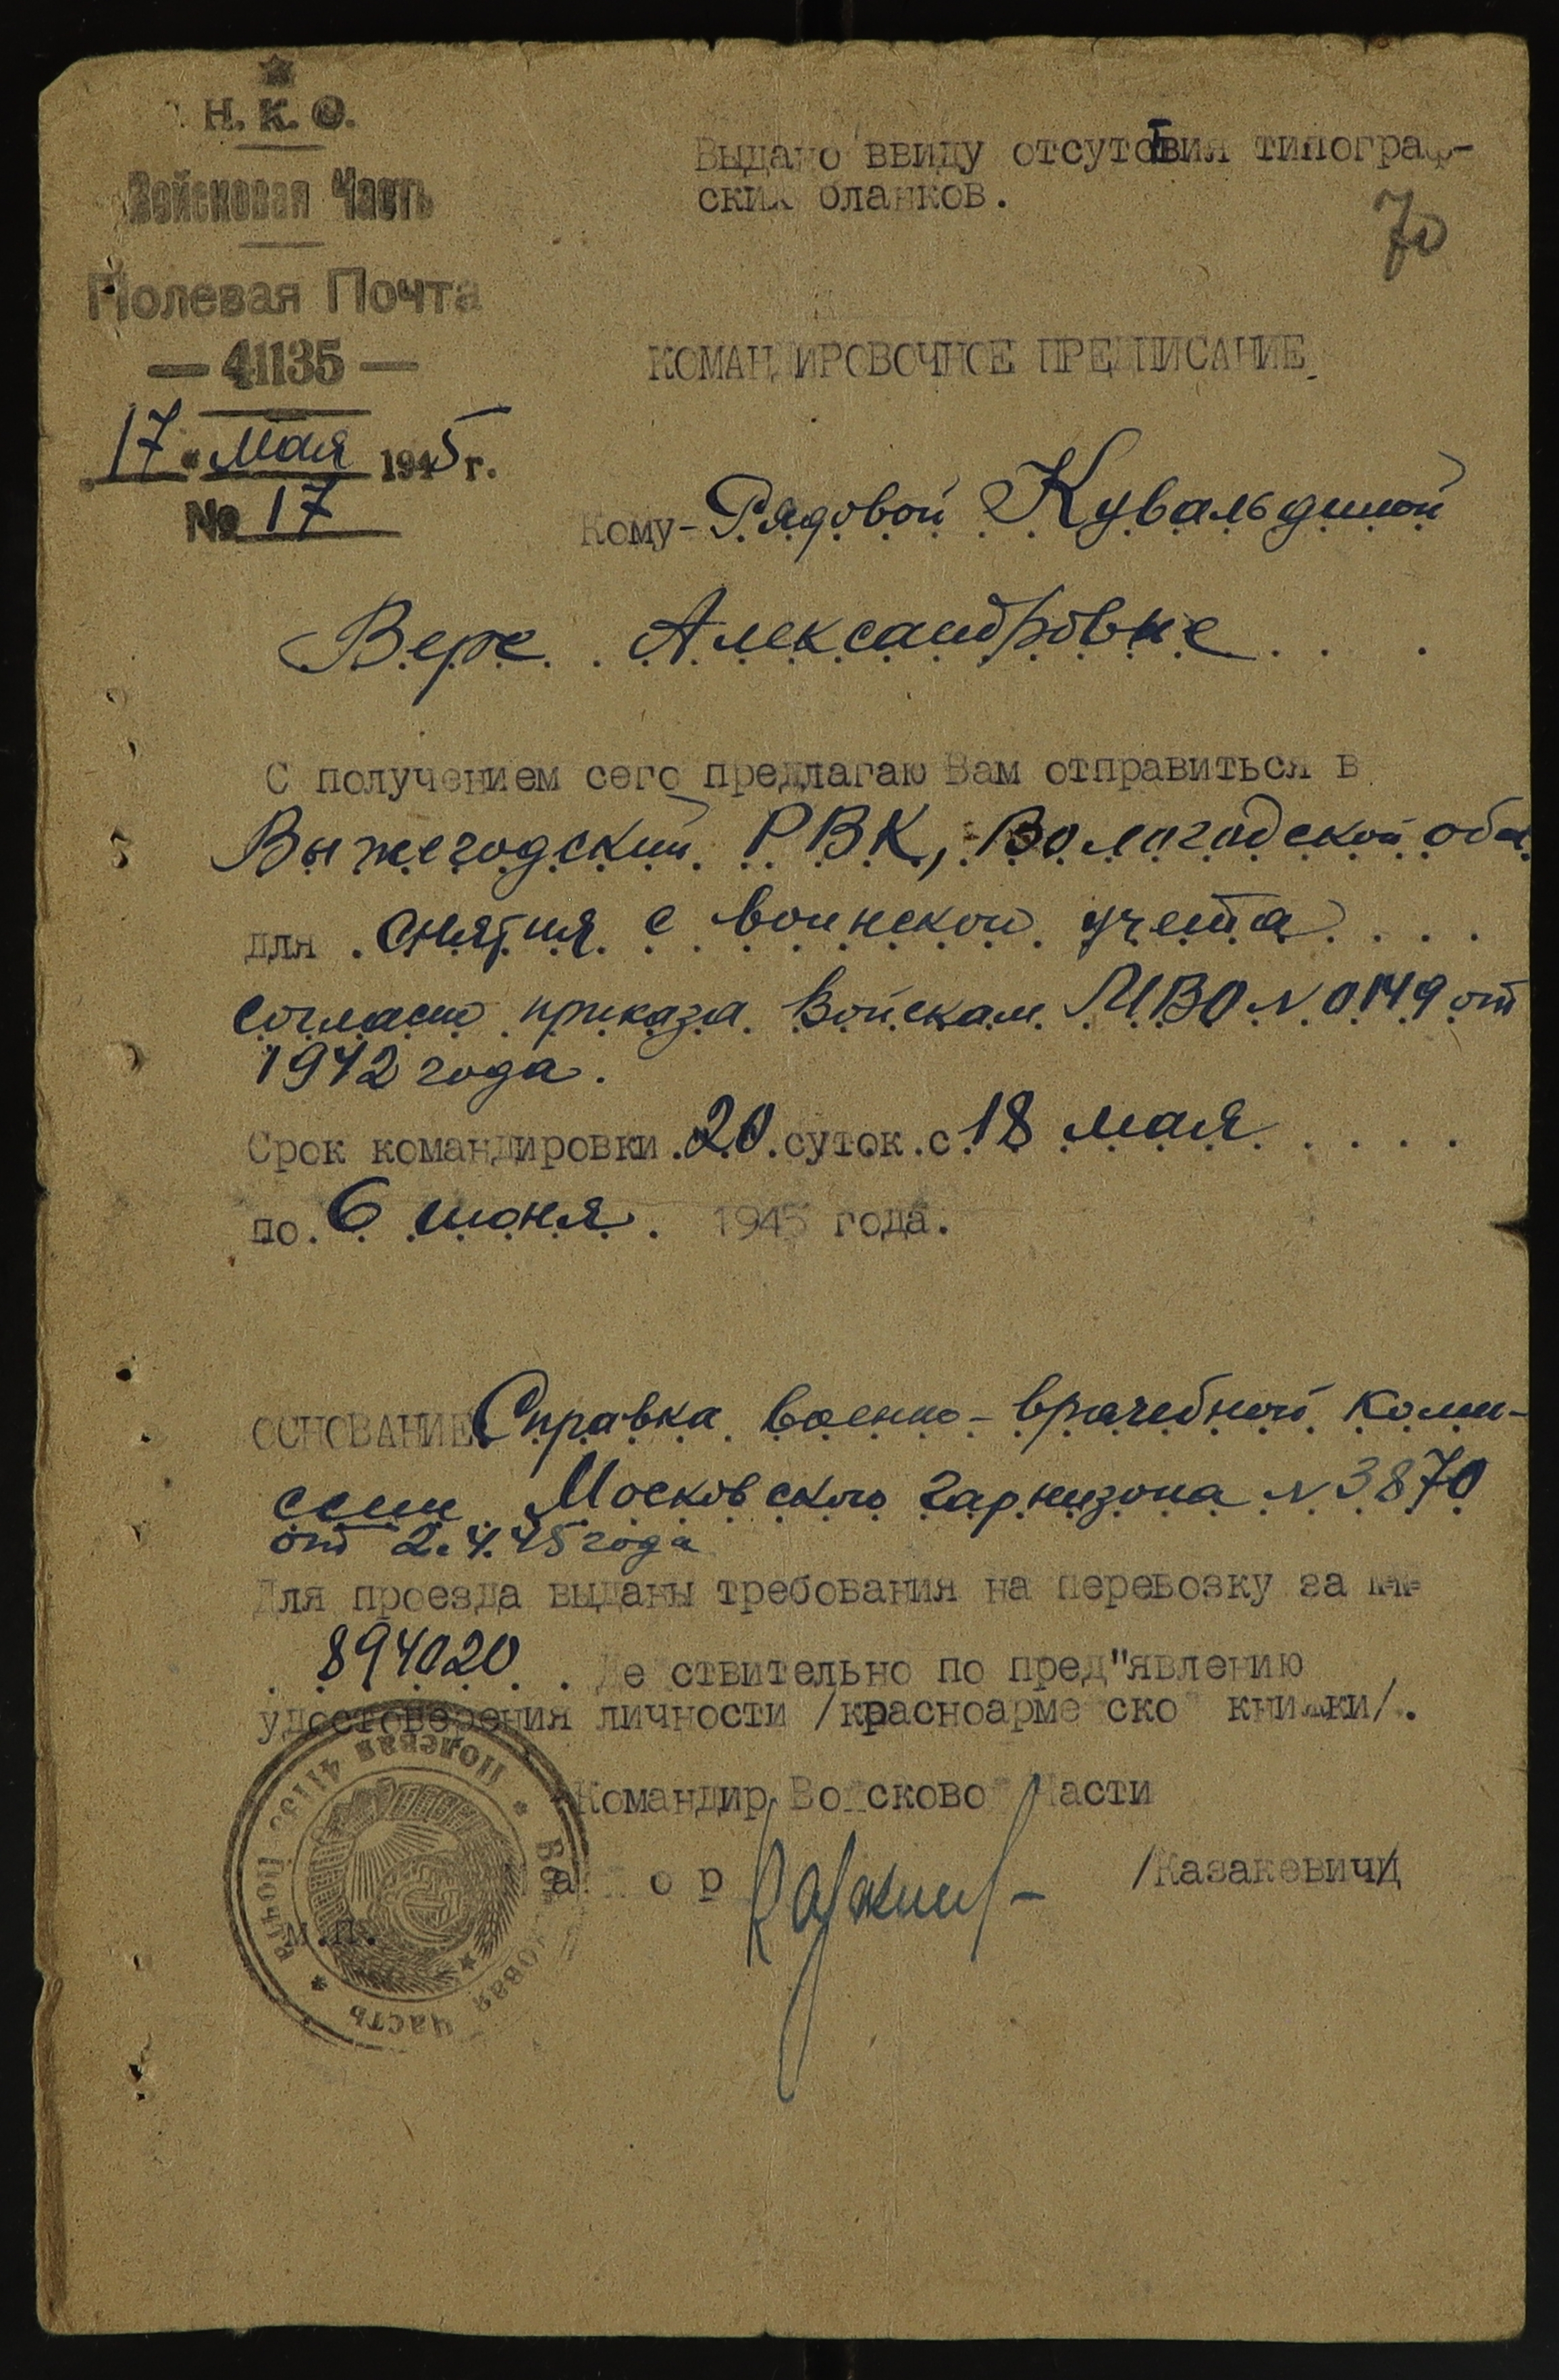 Н. К. О.
Войсковая Часть
Полевая Почта
— 41135 —
17 " мая 1945 г.
№ 17
Выдано ввиду отсутствия типограф-
ских бланков.
70
КОМАНДИРОВОЧНОЕ ПРЕДПИСАНИЕ
Кому - Рядовой Кувальдиной
Вере Александровне
С получением сего предлагаю Вам отправиться в
Выжегодский РВК, Вологодской обл.
для снятия с воинского учета
согласно приказа Войскам МВО N 0149 от
1942 года.
Срок командировки 20 суток с 18 мая
по 6 июня 1945 года.
ОСНОВАНИЕ Справка военно-врачебной комис-
сии Московского гарнизона N 3870
от 2.4.45 года
Для проезда выданы требования на перевозку за №№
894020 Действительно по пред"явлению
удостоверения личности /красноармейской книжки/.
Командир Войсковой Части
Майор /Казакевич/
М.П.
Полевая Почта 41135 * Войсковая часть *